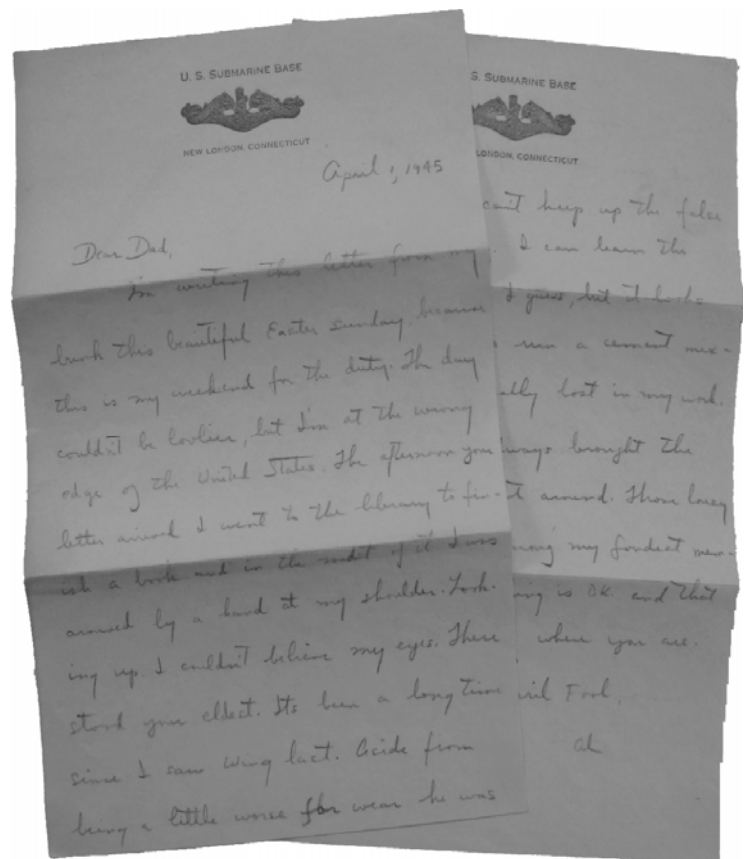 U. S. SUBMARINE BASE
NEW LONDON, CONNECTICUT
April 1, 1945
Dear Dad,
I'm writing this letter from my
bunk this beautiful Easter sunday, because
this is my weekend for the duty. The day
couldn't be lovlier, but I'm at the wrong
edge of the United States. The afternoon your
letter arrived I went to the library to fin-
ish a book and in the midst of it I was
aroused by a hand at my shoulder. Look-
ing up I couldn't believe my eyes. There
stood your eldest. Its been a long time
since I saw Wing last. Aside from
being a little worse for wear he was
S. SUBMARINE BASE
LONDON, CONNECTICUT
can't keep up the false
I can learn the
I guess, but it looks
run a cement mix-
ally lost in my work.
ways brought the
t around. Those lazy
mong my fondest mem-
ing is OK. and that
where you are.
ril Fool,
al